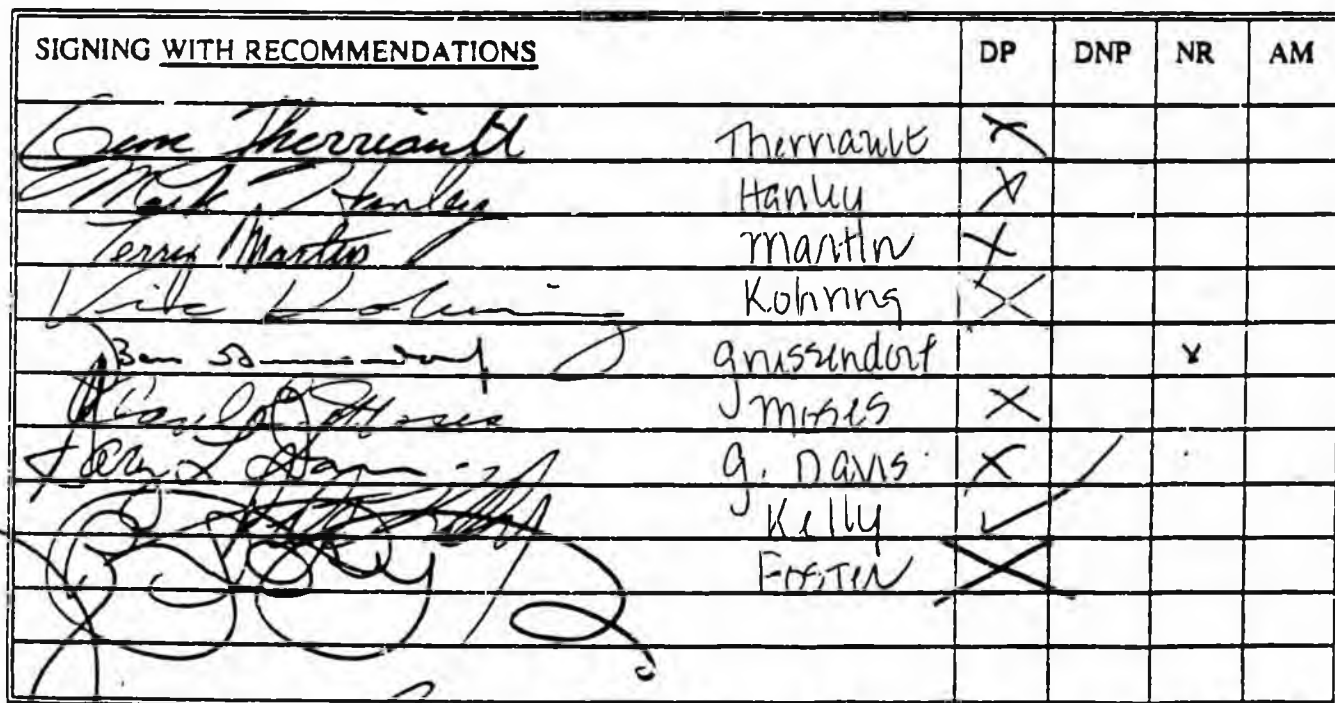 SIGNING WITH RECOMMENDATIONS DP DNP NR AM
Gene Therriault Therriault X
Mark Hanley Hanley X
Terry Martin Martin X
Vic Kohring Kohring X
Ben Grussendorf X
Moses X
G. Davis X
Kelly ✓
Foster X